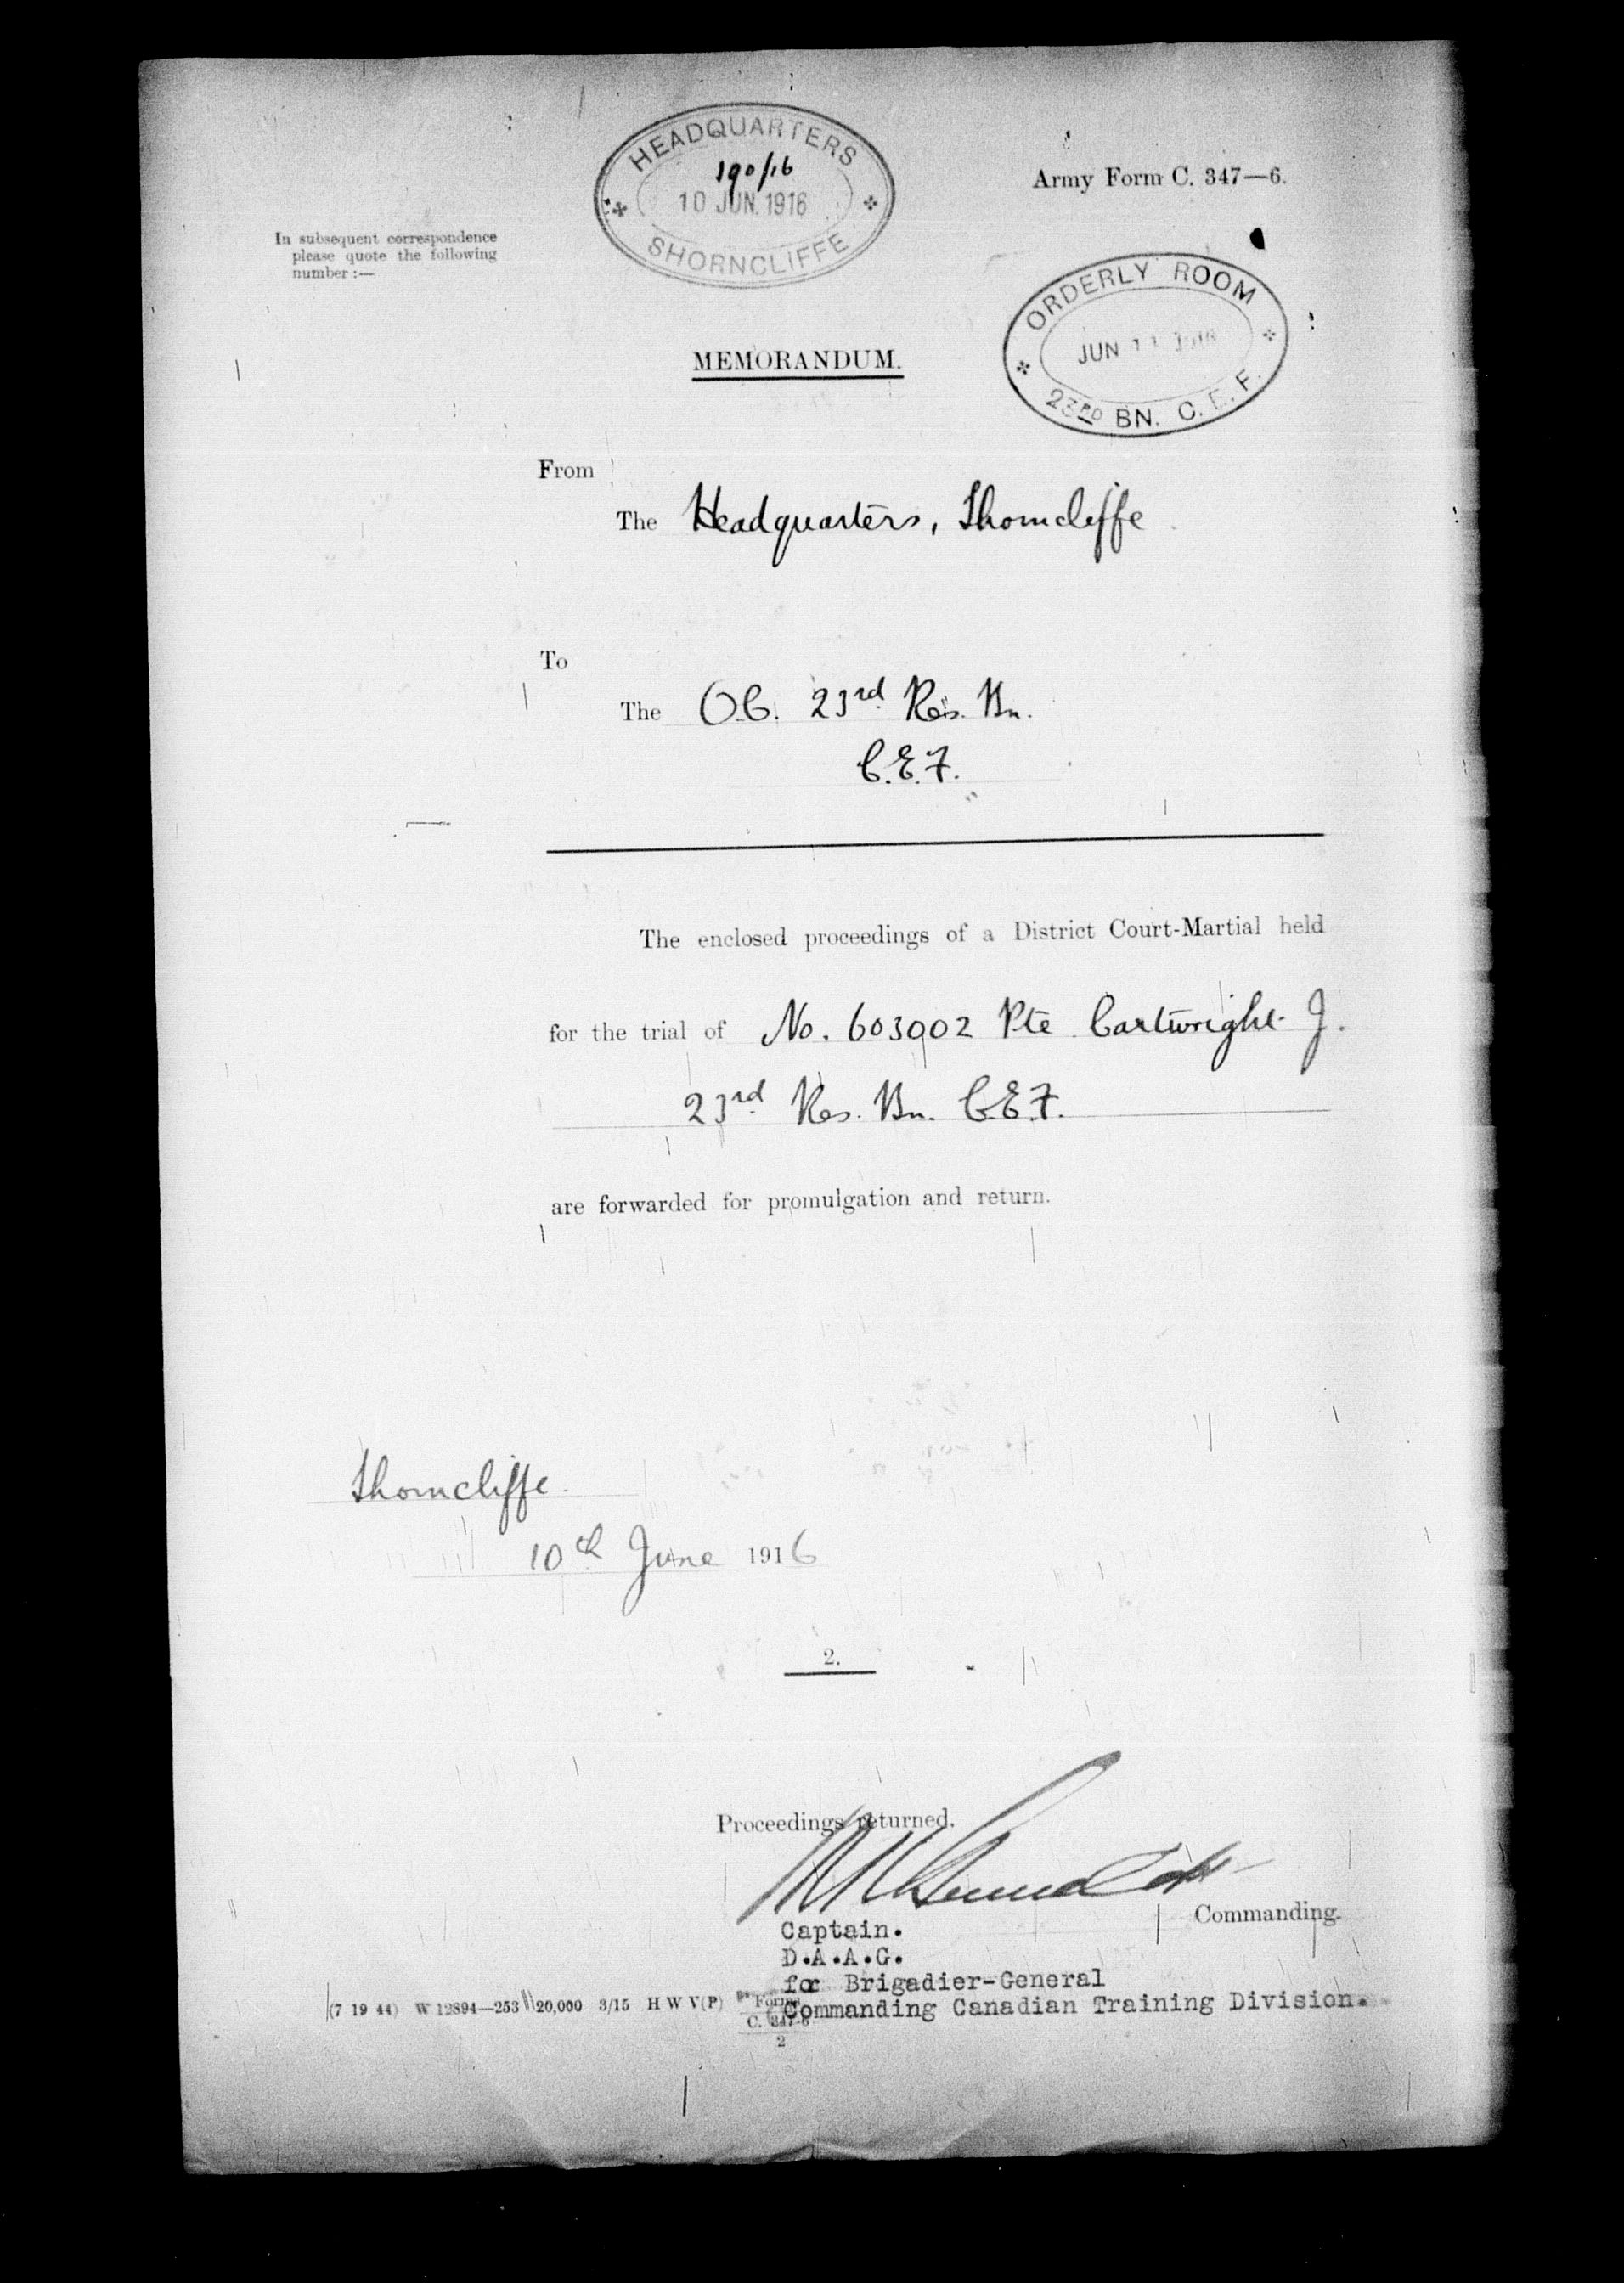 HEADQUARTERS
190/16
10 JUN. 1916
SHORNCLIFFE
Army Form C. 347—6.
In subsequent correspondence
please quote the following
number :—
ORDERLY ROOM
JUN
23RD BN. C. E. F.
MEMORANDUM.
From
The Headquarters, Shorncliffe
To
The O.C. 23rd Res. Bn.
C.E.F.
The enclosed proceedings of a District Court-Martial held
for the trial of No. 603002 Pte Cartwright J.
23rd Res. Bn. C.E.F.
are forwarded for promulgation and return.
Shorncliffe.
10th June 1916
2.
Proceedings returned.
Commanding.
Captain.
D.A.A.G.
for Brigadier-General
Commanding Canadian Training Division.
(7 19 44) W 12894—253 20,000 3/15 H W V(P) Forms
C. 347-6
2